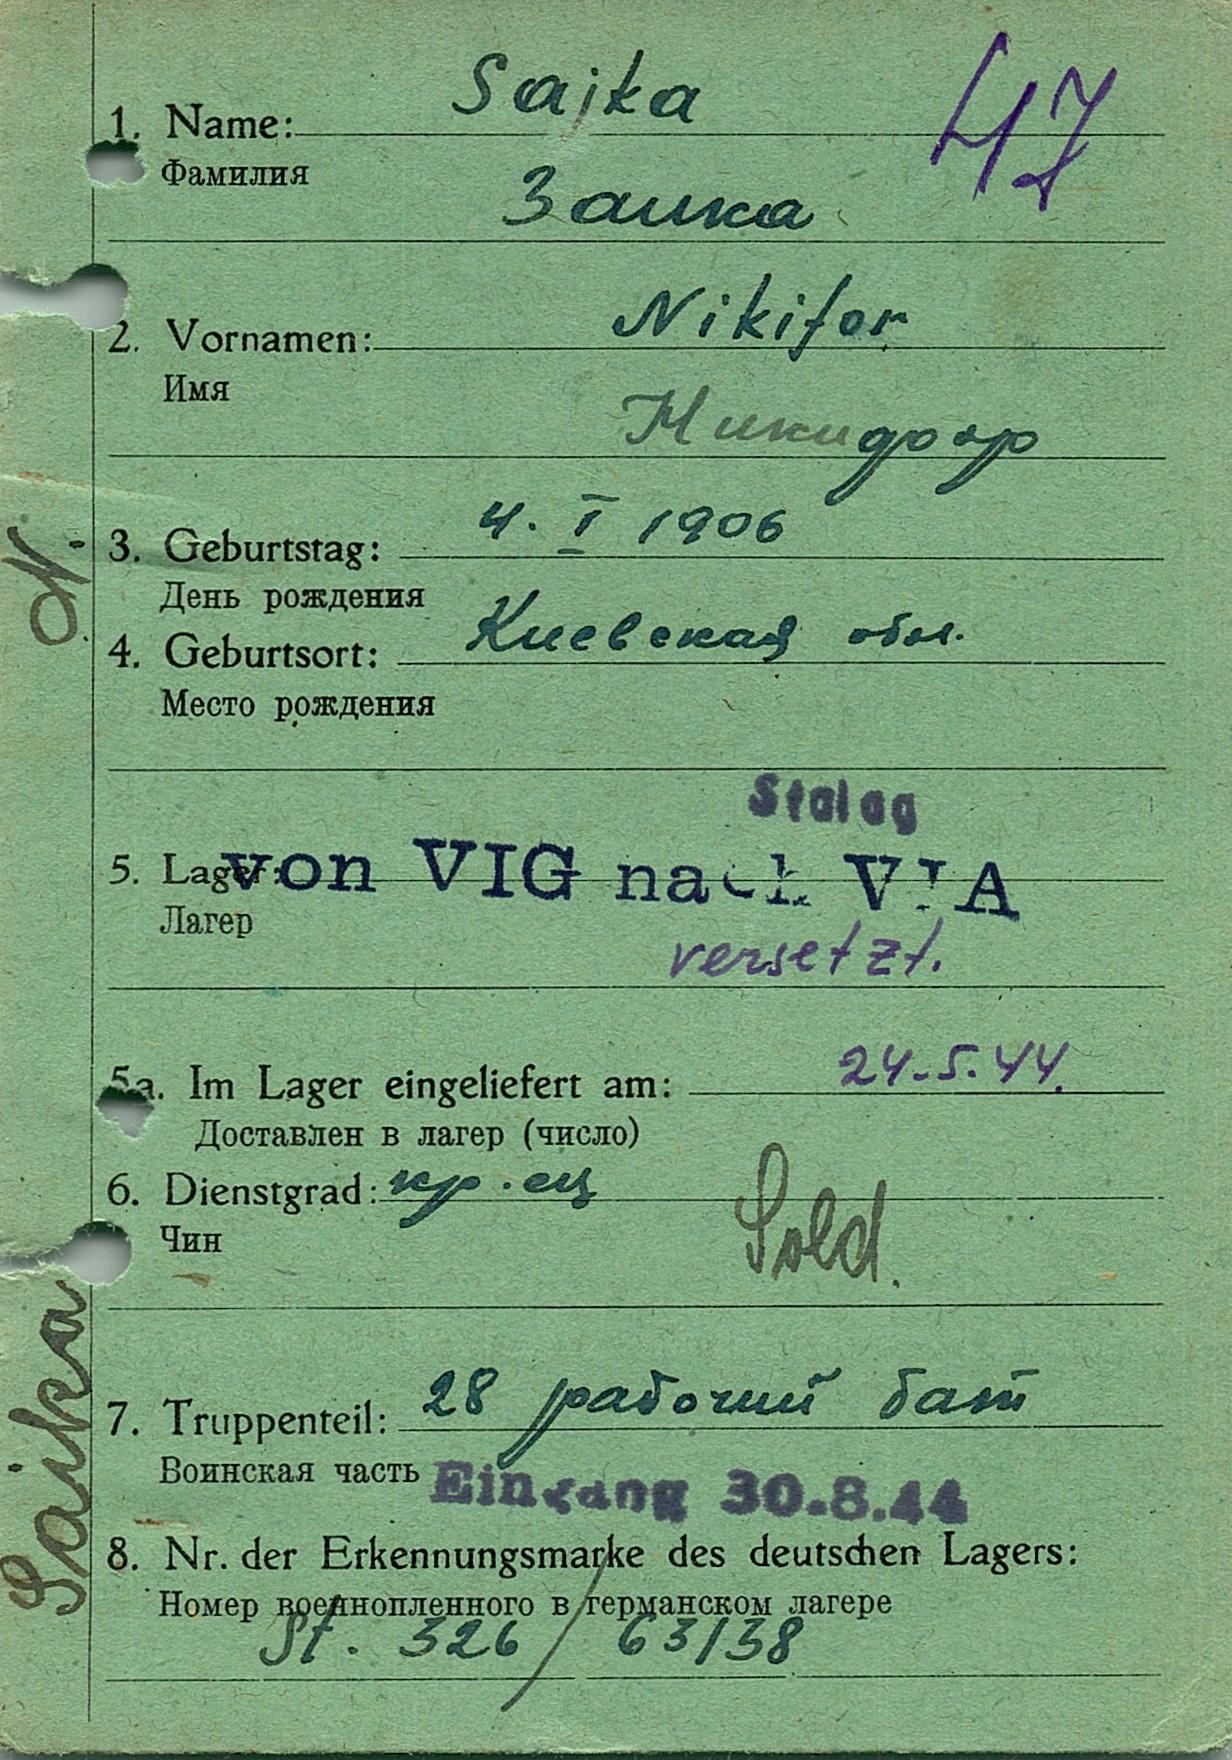 Sajka
47
1. Name:
Фамилия
Заика
Nikifor
2. Vornamen:
Имя
Никифор
4. I 1906
3. Geburtstag:
День рождения
Киевская обл.
4. Geburtsort:
Место рождения
Stalag
5. Lager:
von VIG nach VIA
Лагер
versetzt.
5a. Im Lager eingeliefert am: 24.5.44.
Доставлен в лагер (число)
6. Dienstgrad: кр. ец
Чин
Sold.
28 рабочий бат
7. Truppenteil:
Воинская часть
Eingang 30.8.44
8. Nr. der Erkennungsmarke des deutschen Lagers:
Номер военнопленного в германском лагере
St. 326 / 63138
Saika N.